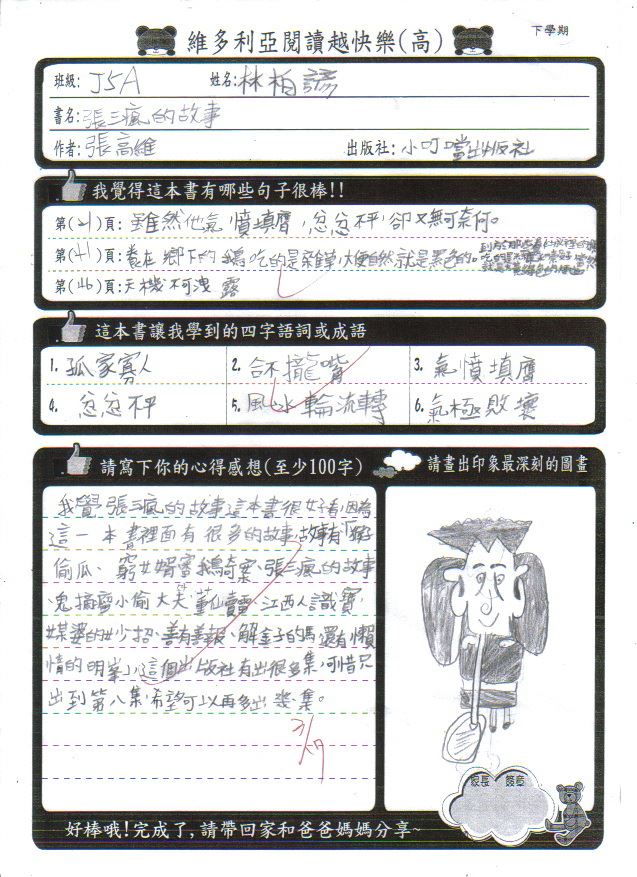 下學期
維多利亞閱讀越快樂(高)
班級: J5A 姓名: 林柏諺
書名: 張三瘋的故事
作者: 張高維 出版社: 小叮噹出版社
我覺得這本書有哪些句子很棒!!
第(21)頁: 雖然他氣憤填膺,忿忿不平,卻又無可奈何。
第(41)頁: 養在鄉下的鵝吃的是雜草,大便自然就是黑色的。
第(16)頁: 天機不可洩露
這本書讓我學到的四字語詞或成語
1. 孤家寡人 2. 合不攏嘴 3. 氣憤填膺
4. 忿忿不平 5. 風水輪流轉 6. 氣極敗壞
請寫下你的心得感想(至少100字) 請畫出印象最深刻的圖畫
我覺張三瘋的故事這本書很好看,因為
這一本書裡面有很多的故事,故事有「猴子
偷瓜、窮女婿審鵝奇案、張三瘋的故事
、鬼搞窮小偷大夫、董仙賣雷、江西人識寶、
媒婆的妙招、善有善報、解金子的馬還有懶
惰的明峯」,這個出版社有出很多集,可惜只
出到第八集,希望可以再多出幾集。
3/17
家長 簽章
好棒哦!完成了,請帶回家和爸爸媽媽分享~